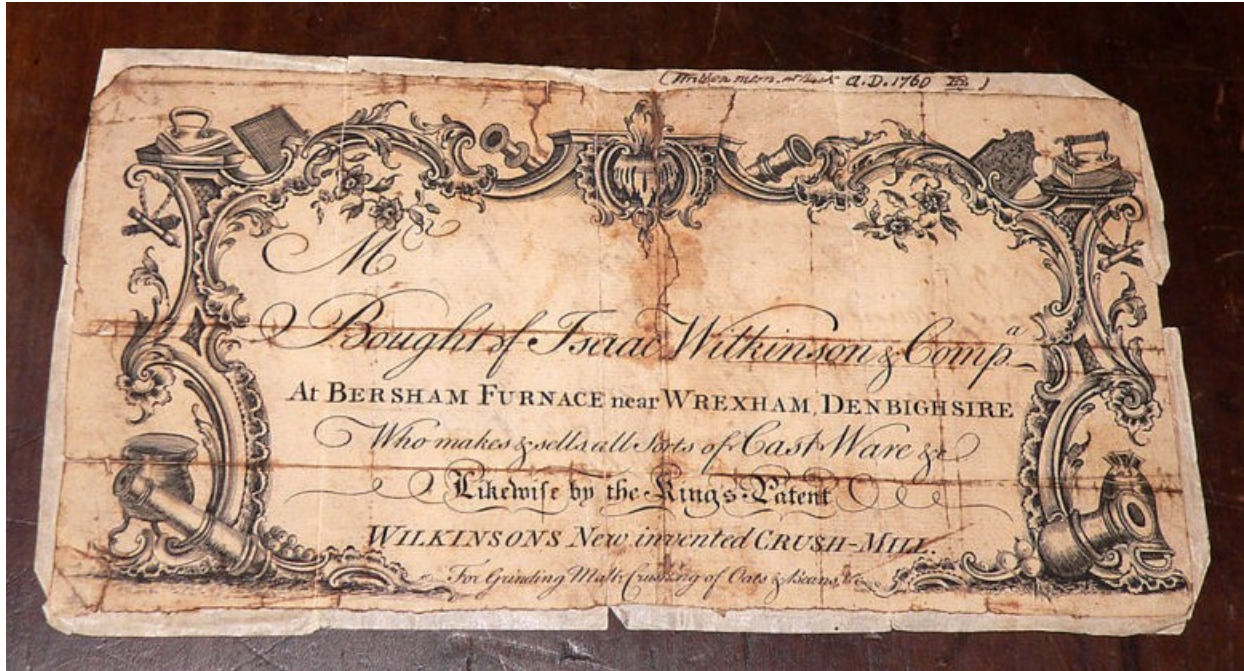 (Written mem. at Back A.D. 1760)
Mr
Bought of Isaac Wilkinson & Compa.
At BERSHAM FURNACE near WREXHAM, DENBIGHSIRE
Who makes & sells all Sorts of Cast Ware &c
Likewise by the King's Patent
WILKINSONS New invented CRUSH-MILL.
For Grinding Malt, Crushing of Oats & Beans &c